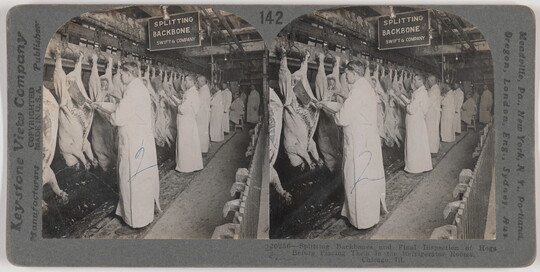 Keystone View Company
Manufacturers MADE IN U.S.A. Publishers
COPYRIGHTED
SPLITTING
BACKBONE
SWIFT & COMPANY
142
SPLITTING
BACKBONE
SWIFT & COMPANY
Meadville, Pa., New York, N. Y., Portland,
Oregon, London, Eng., Sydney, Aus.
2
2
Splitting Backbones and Final Inspection of Hogs
Before Placing Them in the Refrigerator Rooms,
Chicago, Ill.